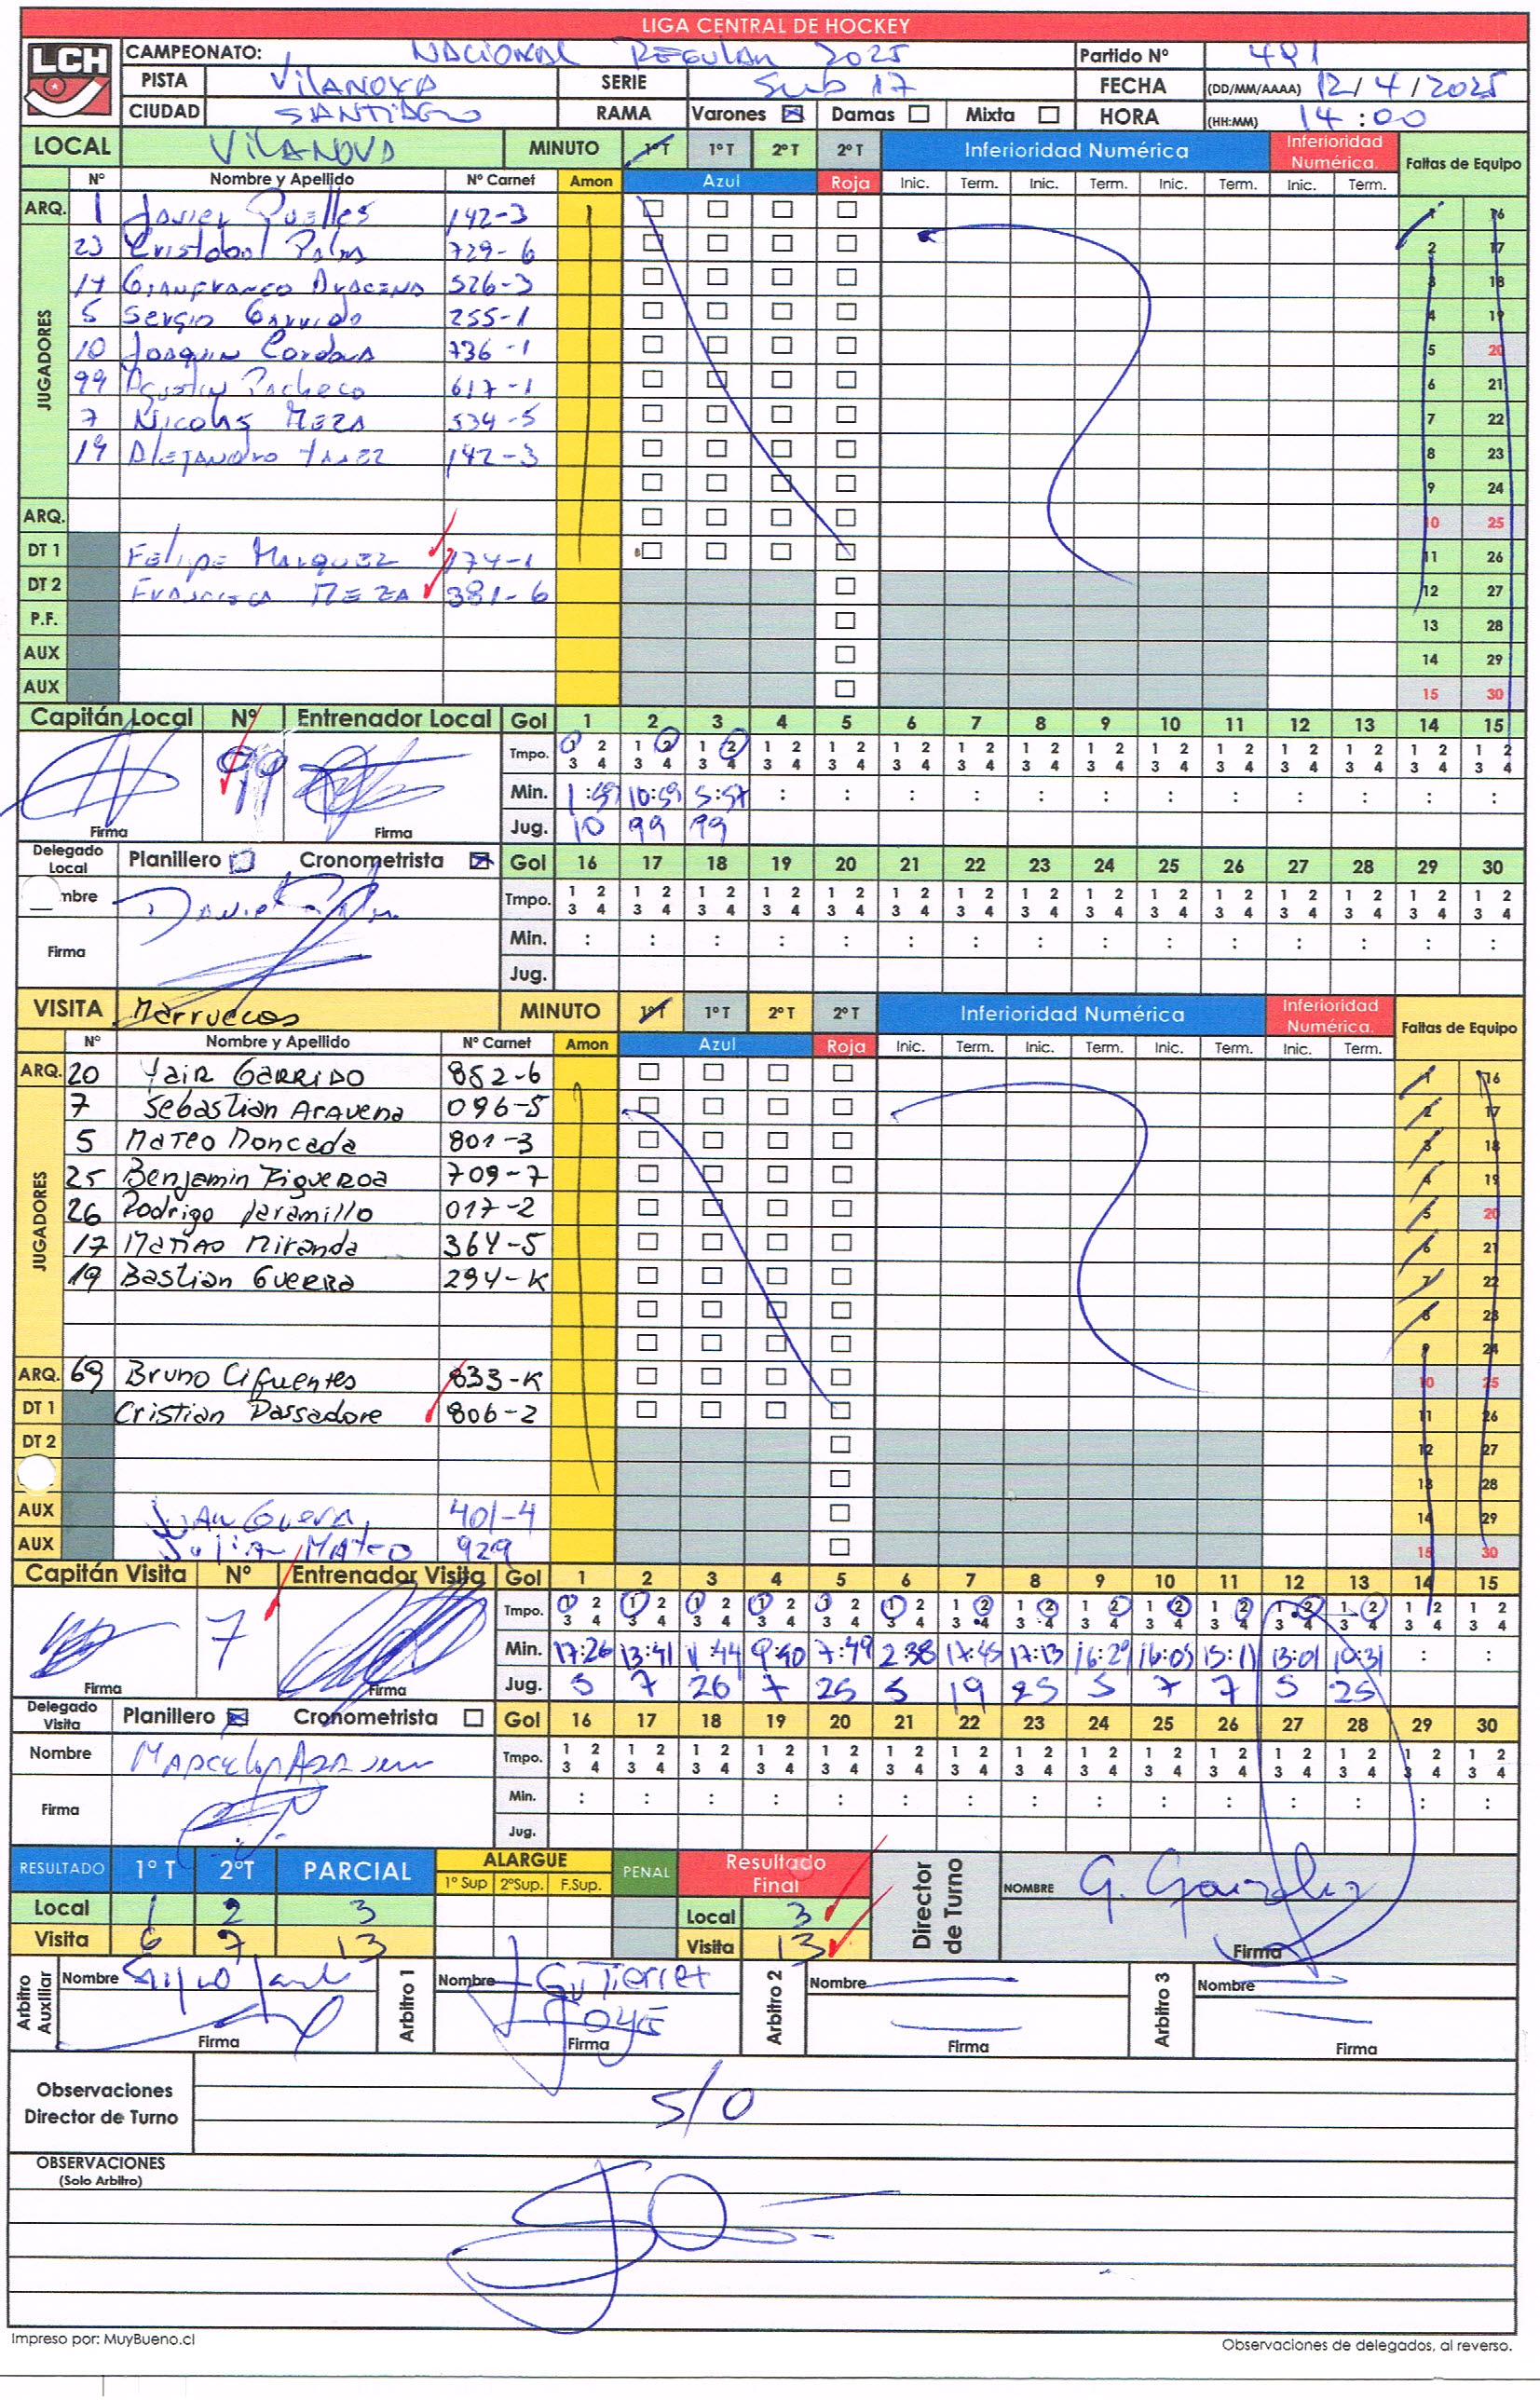 LIGA CENTRAL DE HOCKEY
LCH
CAMPEONATO: NACIONAL REGULAR 2025 Partido Nº 491
PISTA VILANOVA SERIE Sub 17 FECHA (DD/MM/AAAA) 12/4/2025
CIUDAD SANTIAGO RAMA Varones ☒ Damas ☐ Mixta ☐ HORA (HH:MM) 14:00
LOCAL VILANOVA MINUTO 1ºT 1ºT 2ºT 2ºT Inferioridad Numérica Inferioridad Numérica. Faltas de Equipo
Nº Nombre y Apellido Nº Carnet Amon Azul Roja Inic. Term. Inic. Term. Inic. Term. Inic. Term.
ARQ. 1 Javier Puelles 142-3 1 16
JUGADORES
23 Cristobal Palma 729-6 2 17
17 GIANFRANCO ARACENA 526-3 3 18
5 Sergio Garrido 255-1 4 19
10 Joaquin Cordova 736-1 5 20
99 Agustin Pacheco 617-1 6 21
7 Nicolas MEZA 534-5 7 22
19 Alejandro Yañez 142-3 8 23
9 24
ARQ. 10 25
DT 1 Felipe Marquez 174-1 11 26
DT 2 Francisca MEZA 381-6 12 27
P.F. 13 28
AUX 14 29
AUX 15 30
Capitán Local Nº Entrenador Local Gol 1 2 3 4 5 6 7 8 9 10 11 12 13 14 15
99
Tmpo. 1 2 3 4
Min. 1:59 10:59 5:57
Firma Firma Jug. 10 99 99
Delegado Local Planillero ☐ Cronometrista ☒ Gol 16 17 18 19 20 21 22 23 24 25 26 27 28 29 30
mbre Tmpo. 1 2 3 4
Firma Min.
Jug.
VISITA Marruecos MINUTO 1ºT 1ºT 2ºT 2ºT Inferioridad Numérica Inferioridad Numérica. Faltas de Equipo
Nº Nombre y Apellido Nº Carnet Amon Azul Roja Inic. Term. Inic. Term. Inic. Term. Inic. Term.
ARQ. 20 YAIR GARRIDO 852-6 1 16
JUGADORES
7 Sebastian Aravena 096-5 2 17
5 Mateo Moncada 801-3 3 18
25 Benjamin Figueroa 709-7 4 19
26 Rodrigo Jaramillo 017-2 5 20
17 Matias Miranda 364-5 6 21
19 Bastian Guerra 294-K 7 22
8 23
9 24
ARQ. 69 Bruno Cifuentes 833-K 10 25
DT 1 Cristian Passadore 806-2 11 26
DT 2 12 27
13 28
AUX Juan Guerra 401-4 14 29
AUX Julian Mateo 929 15 30
Capitán Visita Nº Entrenador Visita Gol 1 2 3 4 5 6 7 8 9 10 11 12 13 14 15
7
Tmpo. 1 2 3 4
Min. 17:26 13:41 11:44 9:40 7:49 2:38 17:45 17:13 16:29 16:05 15:11 13:01 10:31
Firma Firma Jug. 5 7 26 7 25 5 19 25 5 7 7 5 25
Delegado Visita Planillero ☒ Cronometrista ☐ Gol 16 17 18 19 20 21 22 23 24 25 26 27 28 29 30
Nombre Tmpo. 1 2 3 4
Firma Min.
Jug.
RESULTADO 1º T 2ºT PARCIAL ALARGUE 1º Sup 2ºSup. F.Sup. PENAL Resultado Final Director de Turno NOMBRE G. González
Local 1 2 3 Local 3
Visita 6 7 13 Visita 13 Firma
Arbitro Auxiliar Nombre Arbitro 1 Nombre Gutierrez Arbitro 2 Nombre Arbitro 3 Nombre
Firma Firma Firma Firma
Observaciones
Director de Turno S/O
OBSERVACIONES
(Solo Arbitro)
Impreso por: MuyBueno.cl Observaciones de delegados, al reverso.